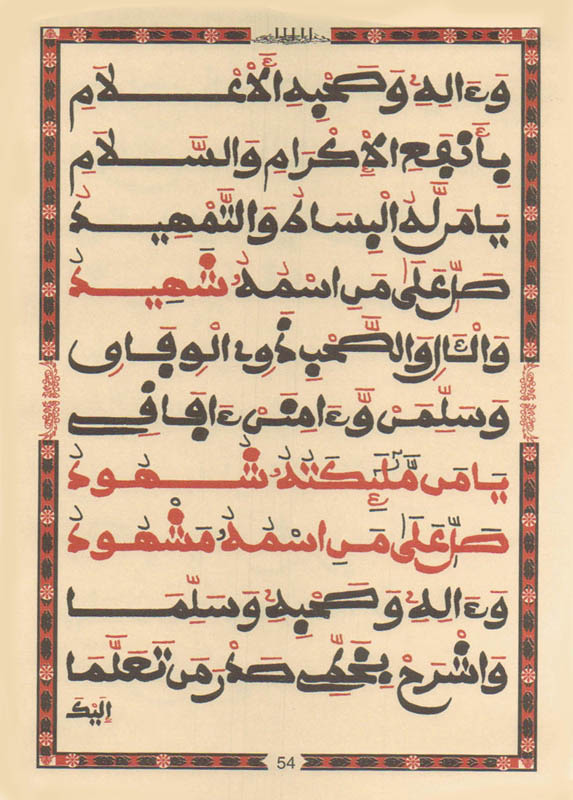 وَءَالِهِ وَصَحْبِهِ الْأَعْلَامِ
بِأَنْفَعِ الْإِكْرَامِ وَالسَّلَامِ
يَا مَن لَّهُ الْبِسَاطُ وَالتَّمْهِيدُ
صَلِّ عَلَى مَنِ اسْمُهُ شَهِيدُ
وَالْآلِ وَالصَّحْبِ ذَوِي الْوِفَاقِ
وَسَلِّمَنْ وَءَامِنَنْ ءَافَاقِي
يَا مَن مَّلَٰئِكَتُهُ شُهُودُ
صَلِّ عَلَى مَنِ اسْمُهُ مَشْهُودُ
وَءَالِهِ وَصَحْبِهِ وَسَلِّمَا
وَاشْرَحْ بِخَطِّي صَدْرَ مَن تَعَلَّمَا
إِلَيْكَ
54